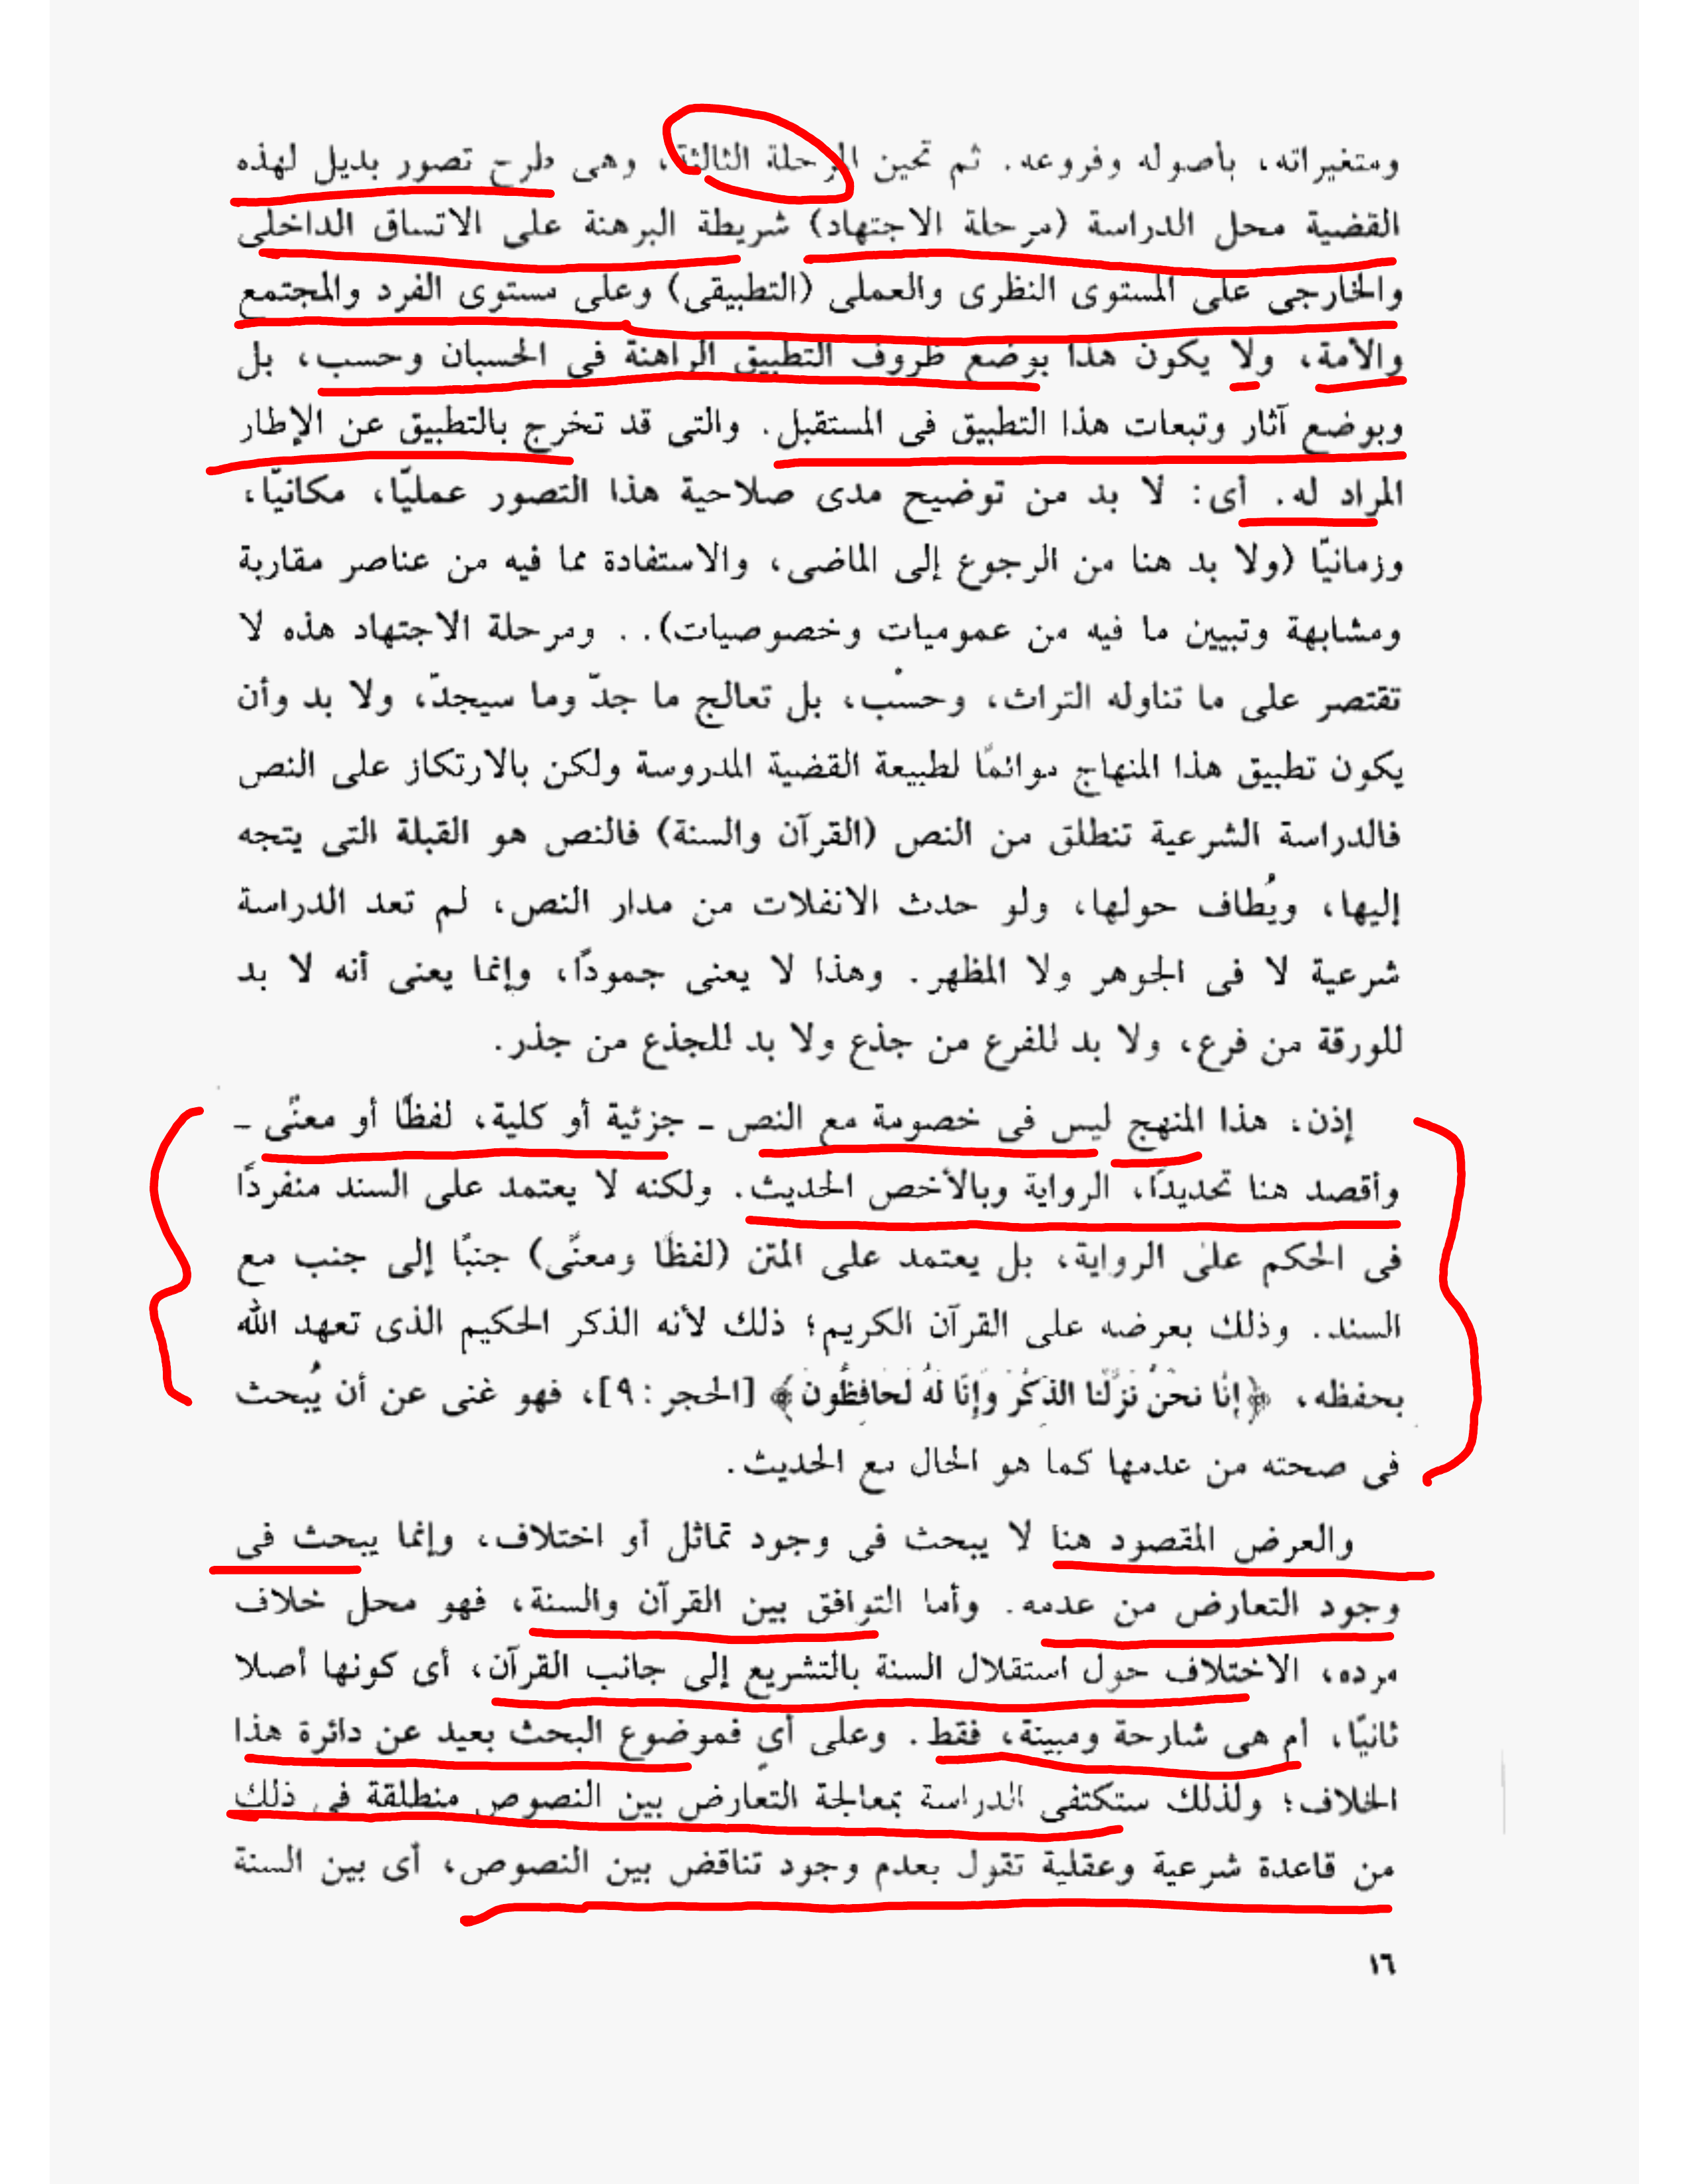 ومتغيراته، بأصوله وفروعه. ثم تحين المرحلة الثالثة، وهى طرح تصور بديل لهذه
القضية محل الدراسة (مرحلة الاجتهاد) شريطة البرهنة على الاتساق الداخلى
والخارجى على المستوى النظرى والعملى (التطبيقى) وعلى مستوى الفرد والمجتمع
والأمة، ولا يكون هذا بوضع ظروف التطبيق الراهنة فى الحسبان وحسب، بل
وبوضع آثار وتبعات هذا التطبيق فى المستقبل. والتى قد تخرج بالتطبيق عن الإطار
المراد له. أى: لا بد من توضيح مدى صلاحية هذا التصور عمليّا، مكانيّا،
وزمانيّا (ولا بد هنا من الرجوع إلى الماضى، والاستفادة مما فيه من عناصر مقاربة
ومشابهة وتبيين ما فيه من عموميات وخصوصيات).. ومرحلة الاجتهاد هذه لا
تقتصر على ما تناوله التراث، وحسْب، بل تعالج ما جدّ وما سيجدّ، ولا بد وأن
يكون تطبيق هذا المنهاج موائمًا لطبيعة القضية المدروسة ولكن بالارتكاز على النص
فالدراسة الشرعية تنطلق من النص (القرآن والسنة) فالنص هو القبلة التى يتجه
إليها، ويُطاف حولها، ولو حدث الانفلات من مدار النص، لم تعد الدراسة
شرعية لا فى الجوهر ولا المظهر. وهذا لا يعنى جمودًا، وإنما يعنى أنه لا بد
للورقة من فرع، ولا بد للفرع من جذع ولا بد للجذع من جذر.
إذن، هذا المنهج ليس فى خصومة مع النص ـ جزئية أو كلية، لفظًا أو معنًى ـ
وأقصد هنا تحديدًا، الرواية وبالأخص الحديث. ولكنه لا يعتمد على السند منفردًا
فى الحكم على الرواية، بل يعتمد على المتن (لفظًا ومعنًى) جنبًا إلى جنب مع
السند. وذلك بعرضه على القرآن الكريم؛ ذلك لأنه الذكر الحكيم الذى تعهد الله
بحفظه، ﴿إِنَّا نَحْنُ نَزَّلْنَا الذِّكْرَ وَإِنَّا لَهُ لَحَافِظُونَ﴾ [الحجر: ٩]، فهو غنى عن أن يُبحث
فى صحته من عدمها كما هو الحال مع الحديث.
والعرض المقصود هنا لا يبحث فى وجود تماثل أو اختلاف، وإنما يبحث فى
وجود التعارض من عدمه. وأما التوافق بين القرآن والسنة، فهو محل خلاف
مرده، الاختلاف حول استقلال السنة بالتشريع إلى جانب القرآن، أى كونها أصلا
ثانيًا، أم هى شارحة ومبينة، فقط. وعلى أىٍ فموضوع البحث بعيد عن دائرة هذا
الخلاف؛ ولذلك ستكتفى الدراسة بمعالجة التعارض بين النصوص منطلقة فى ذلك
من قاعدة شرعية وعقلية تقول بعدم وجود تناقض بين النصوص، أى بين السنة
١٦